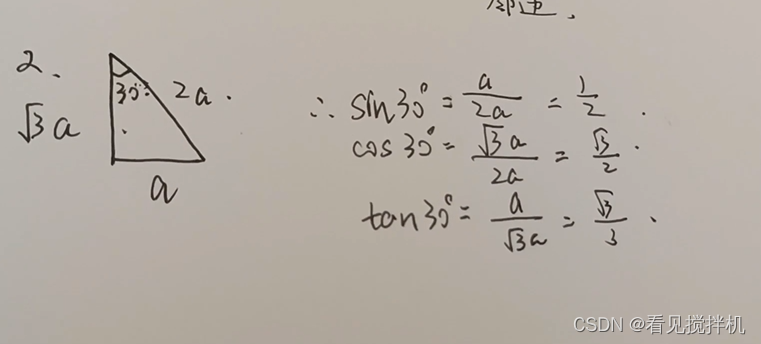 邻边.
2.
30°
2a.
√3 a
a
∴ sin30° = a/2a = 1/2.
cos30° = √3a/2a = √3/2.
tan30° = a/√3a = √3/3.
CSDN @看见搅拌机